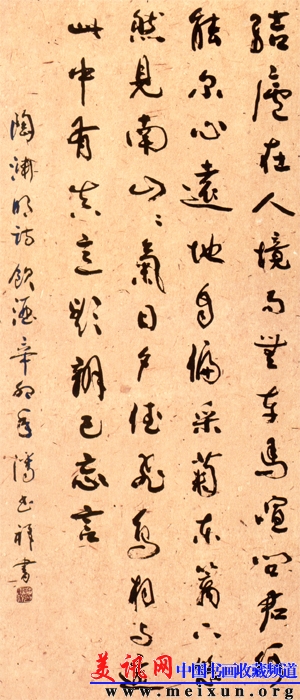 結廬在人境而無车馬喧問君何
能尔心遠地自偏采菊东篱下悠
然見南山〻氣日夕佳飛鳥相与還
此中有真意欲辨已忘言
陶渊明诗飲酒辛卯潘祥書
美讯网 中国书画收藏频道
www.meixun.org